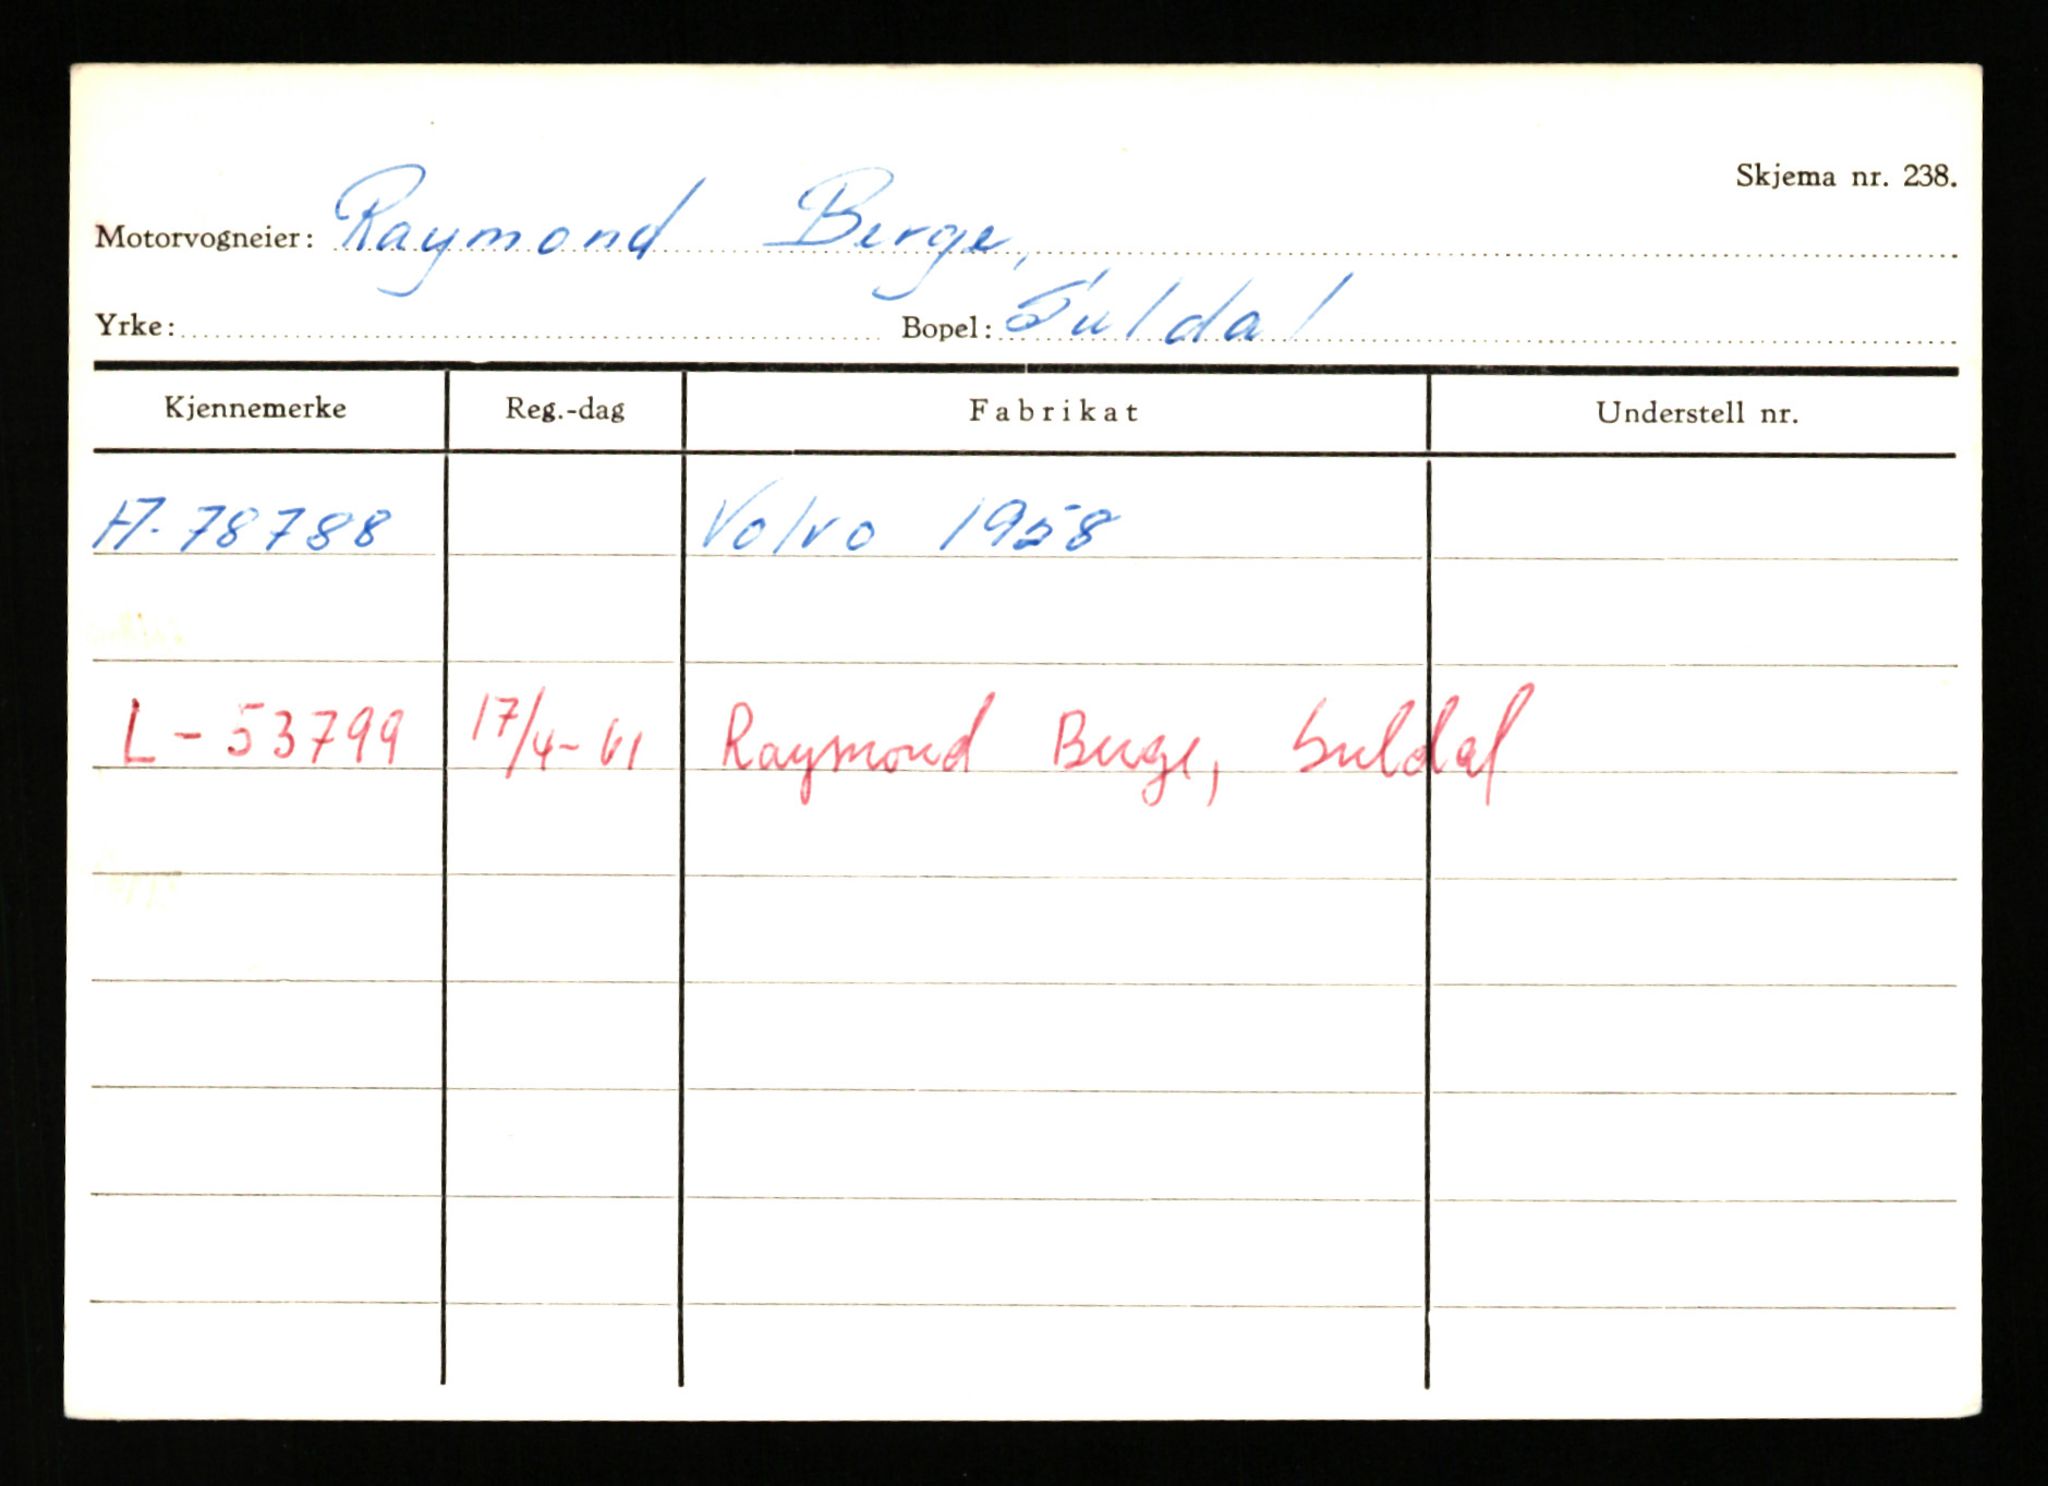 Skjema nr. 238.
Motorvogneier: Raymond Berge,
Yrke: Bopel: Suldal
Kjennemerke Reg.-dag Fabrikat Understell nr.
78788 Volvo 1958
L-53799 17/4-61 Raymond Berge, Suldal